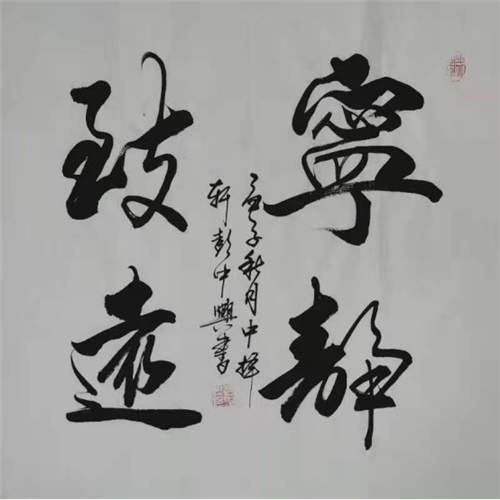 寧靜
致遠
子秋月中
軒彭中興書